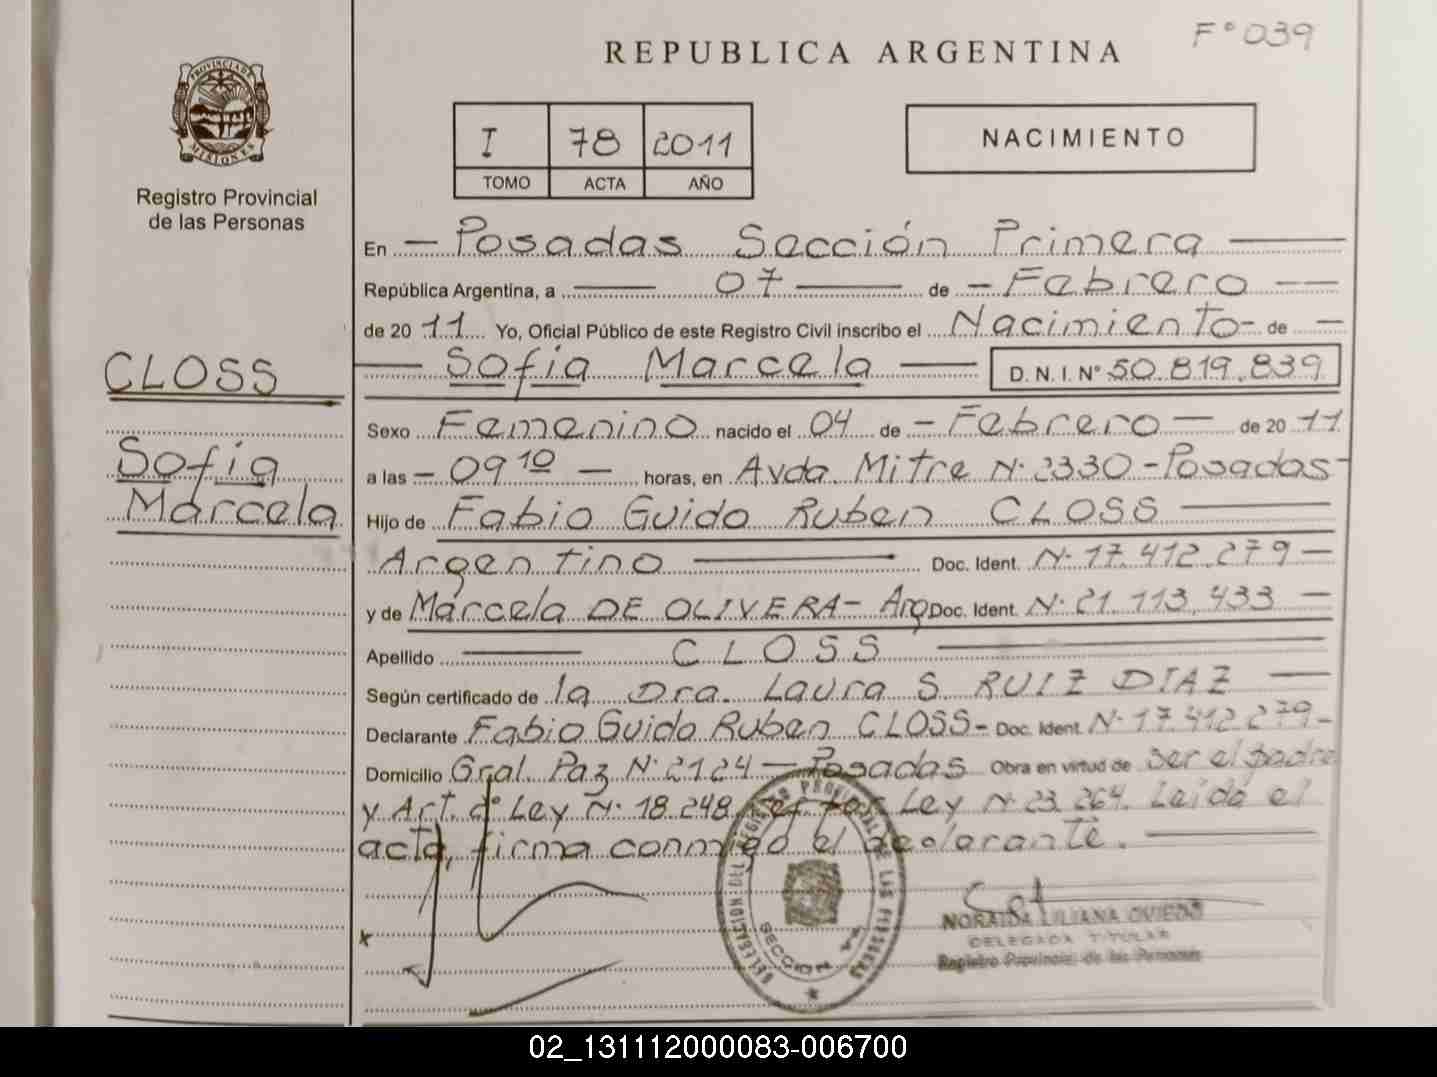 F° 039
REPUBLICA ARGENTINA
PROVINCIA DE
MISIONES
Registro Provincial
de las Personas
I 78 2011
TOMO ACTA AÑO
NACIMIENTO
En — Posadas Sección Primera —
República Argentina, a — 07 — de — Febrero —
de 20 11 Yo, Oficial Público de este Registro Civil inscribo el Nacimiento- de —
— Sofia Marcela — D. N. I. N° 50.819.839
CLOSS
Sofia
Marcela
Sexo Femenino nacido el 04 de — Febrero — de 20 11
a las — 09 10 — horas, en Avda. Mitre N· 2330 - Posadas -
Hijo de Fabio Guido Ruben CLOSS —
Argentino — Doc. Ident. N· 17.412.279 —
y de Marcela DE OLIVERA - Arg Doc. Ident. N· 21.113.433 —
Apellido — CLOSS —
Según certificado de la Dra. Laura S. RUIZ DIAZ —
Declarante Fabio Guido Ruben CLOSS - Doc. Ident. N· 17.412.279 -
Domicilio Gral. Paz N· 2124 — Posadas Obra en virtud de ser el padre
y Art. Ley N· 18.248, Ley N· 23.264. Leída el
acta, firma conmigo el declarante. —
DELEGACION DEL REGISTRO PROVINCIAL DE LAS PERSONAS
SECCION 1A
NORAIDA LILIANA OVIEDO
DELEGADA TITULAR
Registro Provincial de las Personas
02_131112000083-006700